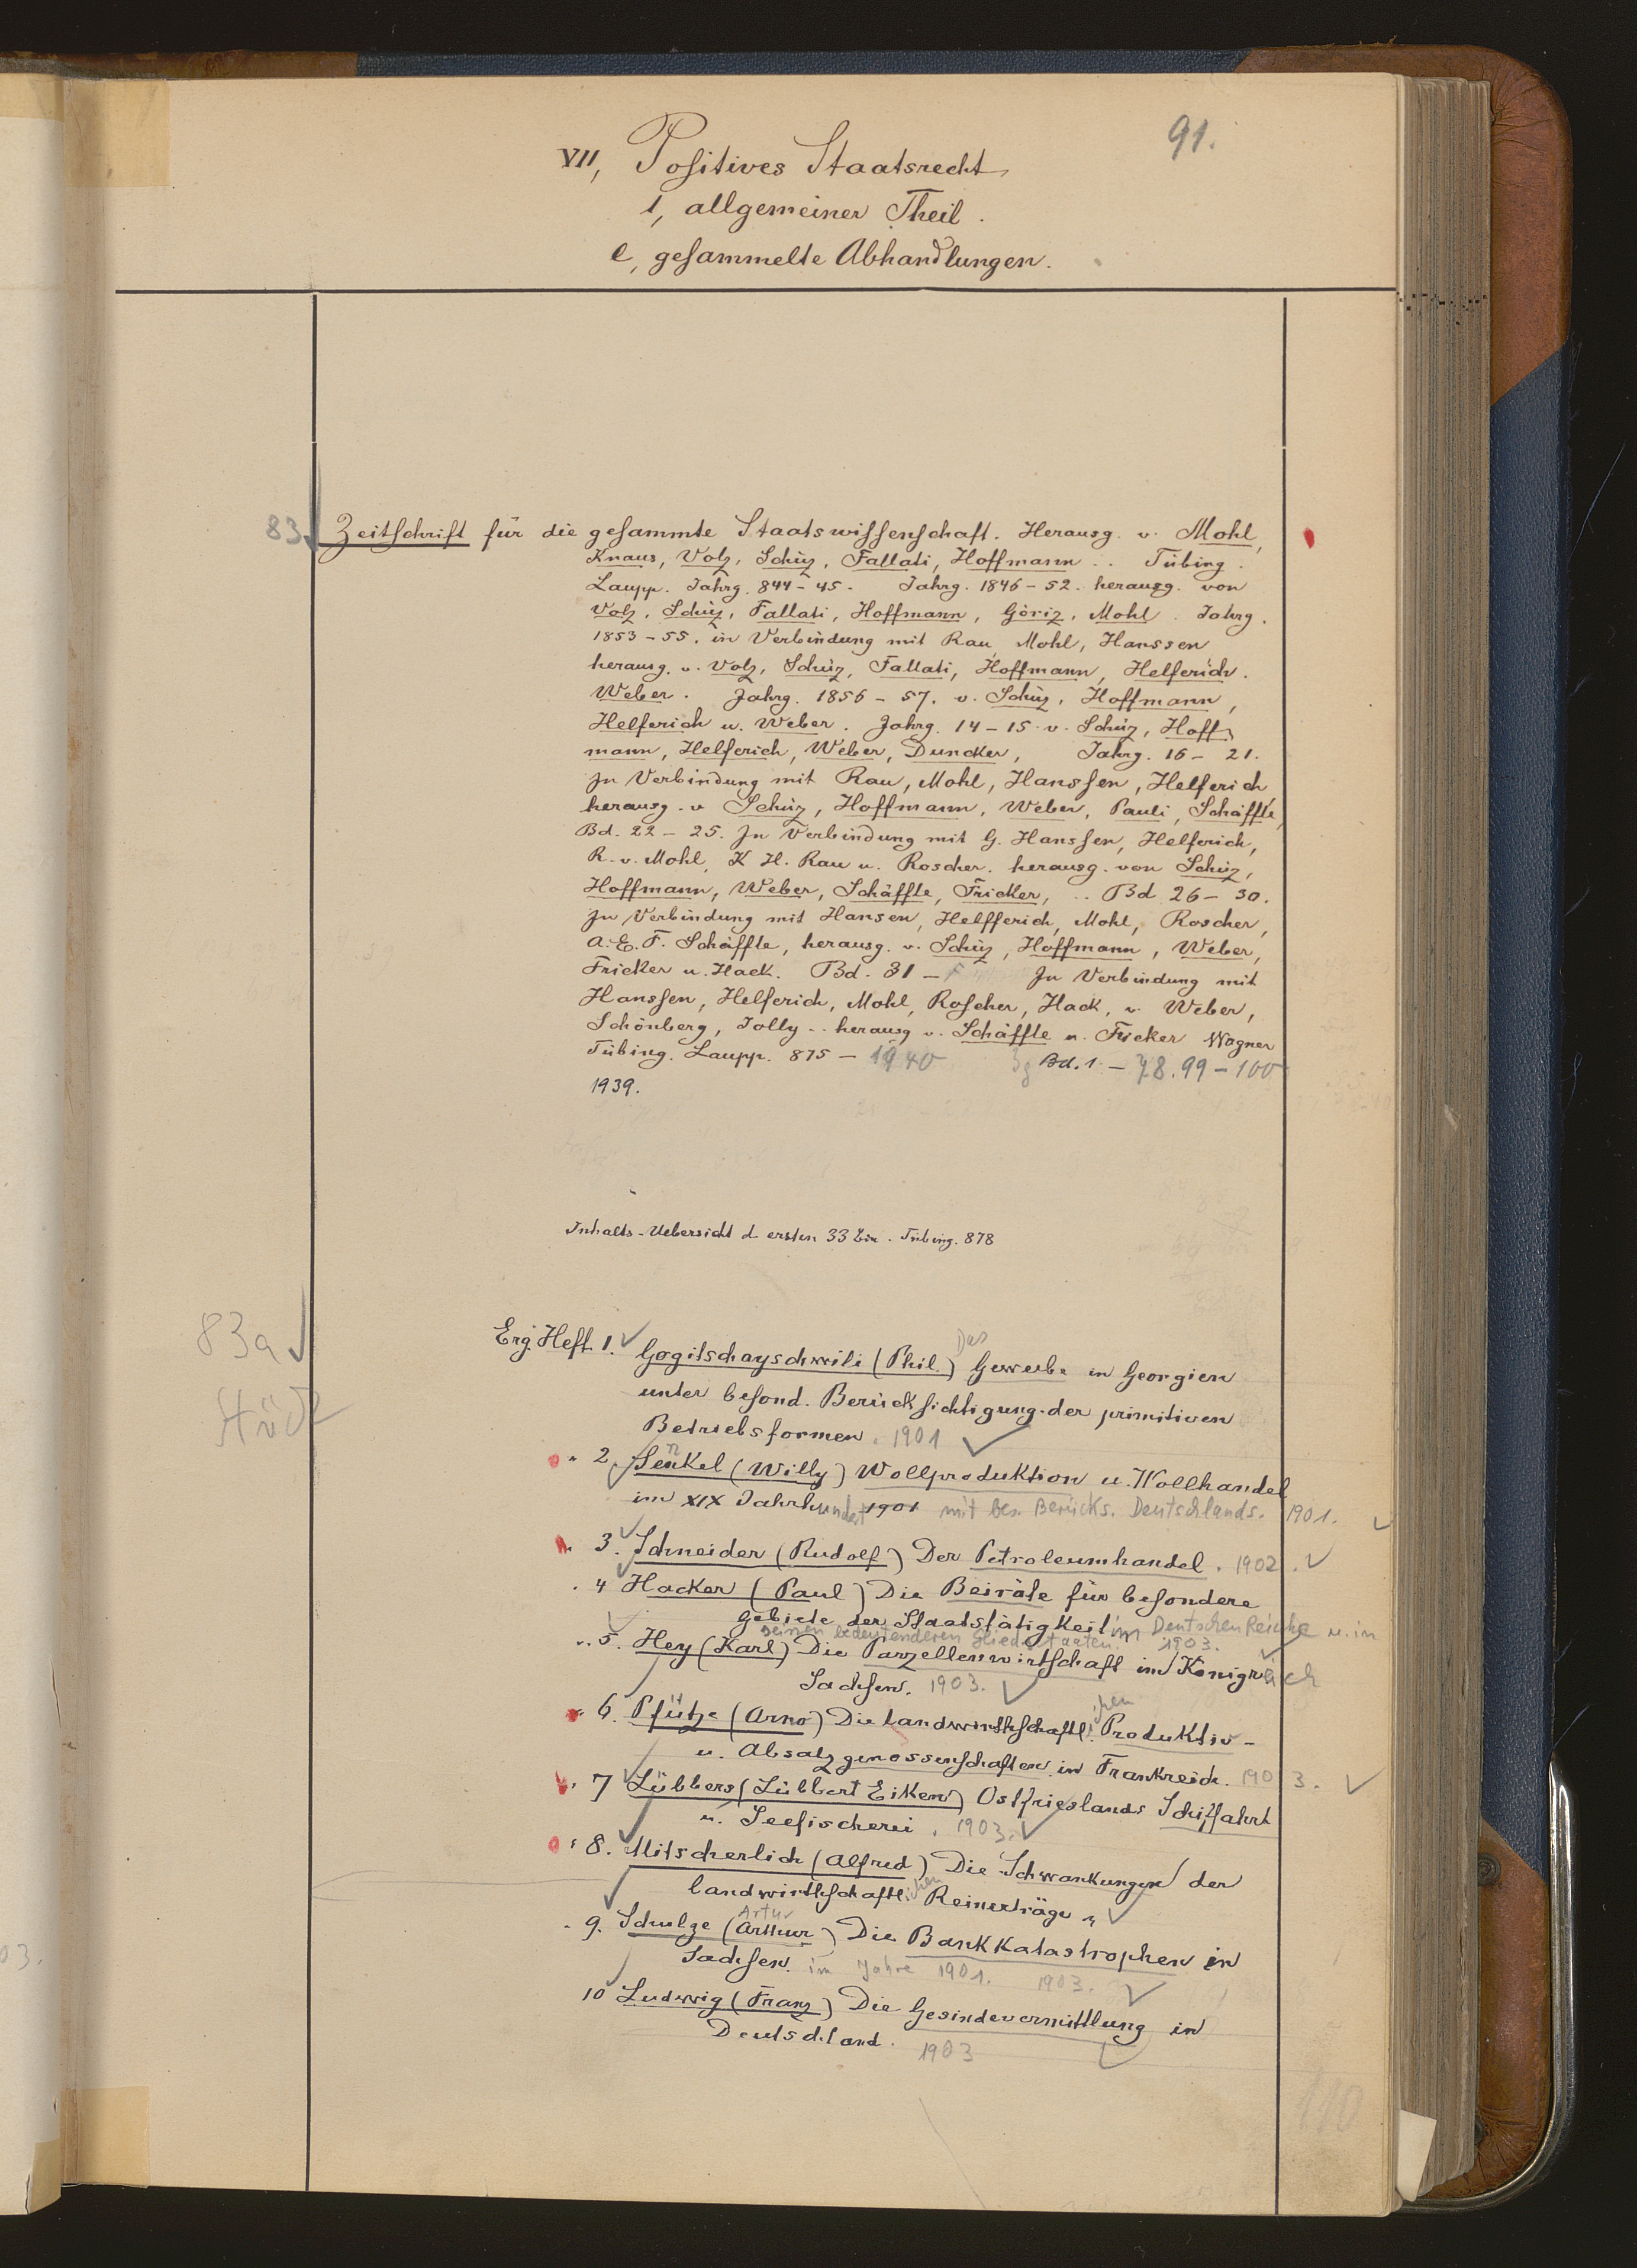 91.
VII, Positives Staatsrecht
1, allgemeiner Theil.
e, gesammelte Abhandlungen.
83 Zeitschrift für die gesammte Staatswissenschaft. Herausg. v. Mohl,
Knaus, Volz, Schüz, Fallati, Hoffmann .. Tübing.
Laupp. Jahrg. 844-45. Jahrg. 1846-52. herausg. von
Volz, Schüz, Fallati, Hoffmann, Göriz, Mohl. Jahrg.
1853-55. in Verbindung mit Rau, Mohl, Hanssen
herausg. v. Volz, Schüz, Fallati, Hoffmann, Helferich.
Weber. Jahrg. 1856-57. v. Schüz, Hoffmann,
Helferich u. Weber. Jahrg. 14-15. v. Schüz, Hoff-
mann, Helferich, Weber, Duncker, Jahrg. 16-21.
In Verbindung mit Rau, Mohl, Hanssen, Helferich
herausg. v Schüz, Hoffmann, Weber, Pauli, Schäffle,
Bd. 22-25. In Verbindung mit G. Hanssen, Helferich,
R. v. Mohl, K H. Rau u. Roscher. herausg. von Schüz,
Hoffmann, Weber, Schäffle, Fricker, .. Bd 26-30.
In Verbindung mit Hansen, Helfferich, Mohl, Roscher,
A. E. F. Schäffle, herausg. v. Schüz, Hoffmann, Weber,
Fricker u. Hack. Bd. 31- In Verbindung mit
Hanssen, Helferich, Mohl, Roscher, Hack, v. Weber,
Schönberg, Jolly .. herausg v. Schäffle u. Fricker Wagner
Tübing. Laupp. 875-1940 Bd. 1.-78. 99-100
1939.
Inhalts-Uebersicht d ersten 33 Bde. Tübing. 878
83a
Stück
Erg. Heft 1. Gogitschayschwili (Phil.) Das Gewerbe in Georgien
unter besond. Berücksichtigung der primitiven
Betriebsformen. 1901
" 2. Senkel (Willy) Wollproduktion u. Wollhandel
im XIX Jahrhundert 1901 mit bes. Berücks. Deutschlands. 1901.
" 3. Schneider (Rudolf) Der Petroleumhandel. 1902.
" 4 Hacker (Paul) Die Beiräte für besondere
Gebiete der Staatstätigkeit im Deutschen Reiche u. in
seinen bedeutenderen Gliedstaaten. 1903.
" 5. Hey (Karl) Die Parzellenwirtschaft im Königreich
Sachsen. 1903.
" 6. Pfütze (Arno) Die landwirthschaftlichen Produktiv-
u. Absatzgenossenschaften in Frankreich. 1903.
" 7 Lübbers (Lübbert Eiken) Ostfrieslands Schiffahrt
u. Seefischerei. 1903.
" 8. Mitscherlich (Alfred) Die Schwankungen der
landwirthschaftlichen Reinerträge "
" 9. Schulze (Arthur) Artur Die Bankkatastrophen in
Sachsen. im Jahre 1901. 1903.
10 Ludwig (Franz) Die Gesindevermittlung in
Deutschland. 1903
110